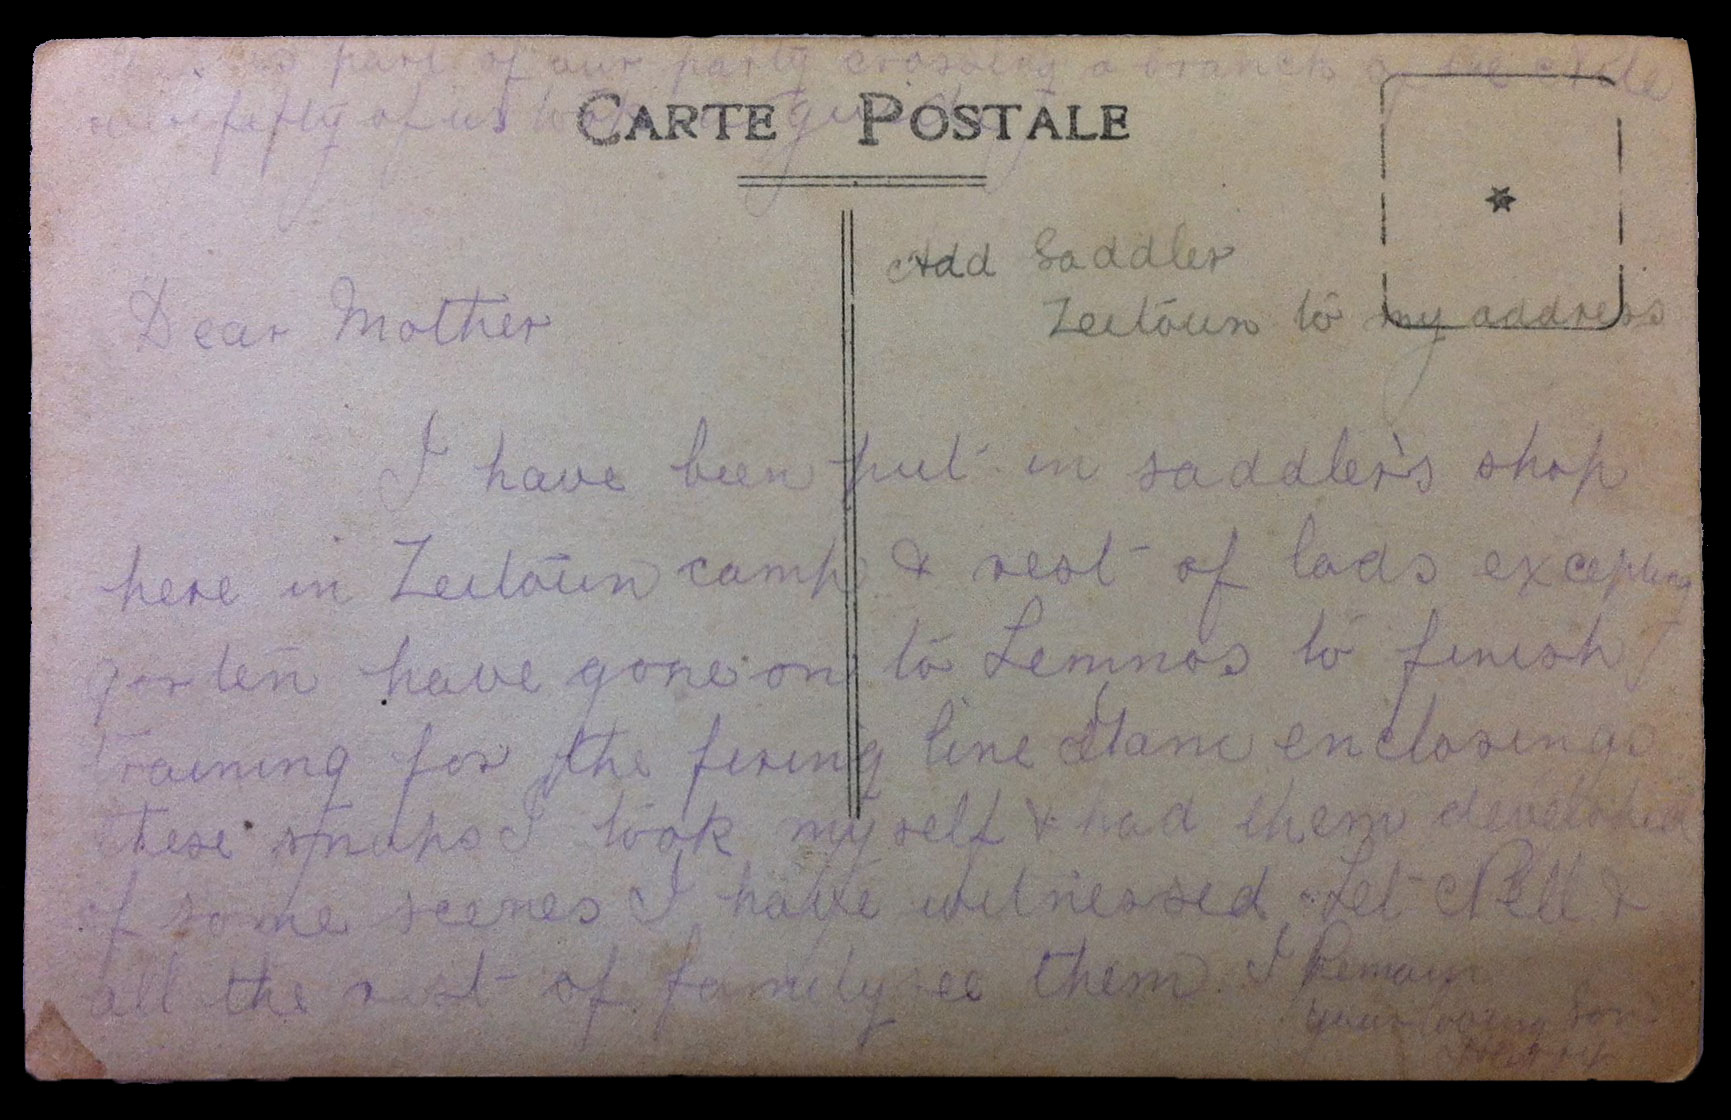 is part of our party crossing a branch of the Nile
fifty of us
CARTE POSTALE
Add Saddler
Zeitoun to my address
Dear Mother
I have been put in saddler's shop
here in Zeitoun camp & rest of lads excepting
ten have gone on to Lemnos to finish
training for the firing line I am enclosing
these snaps I took myself & had them developed
of some scenes I have witnessed Let Nell &
all the rest of family see them. I Remain
your loving Son